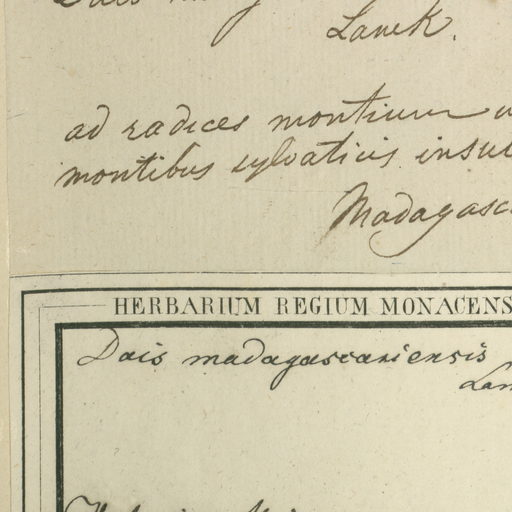 Dais
Lamk.
ad radices montium
montibus sylvaticis insul
Madagasc
HERBARIUM REGIUM MONACENS
Dais madagascariensis
Lam